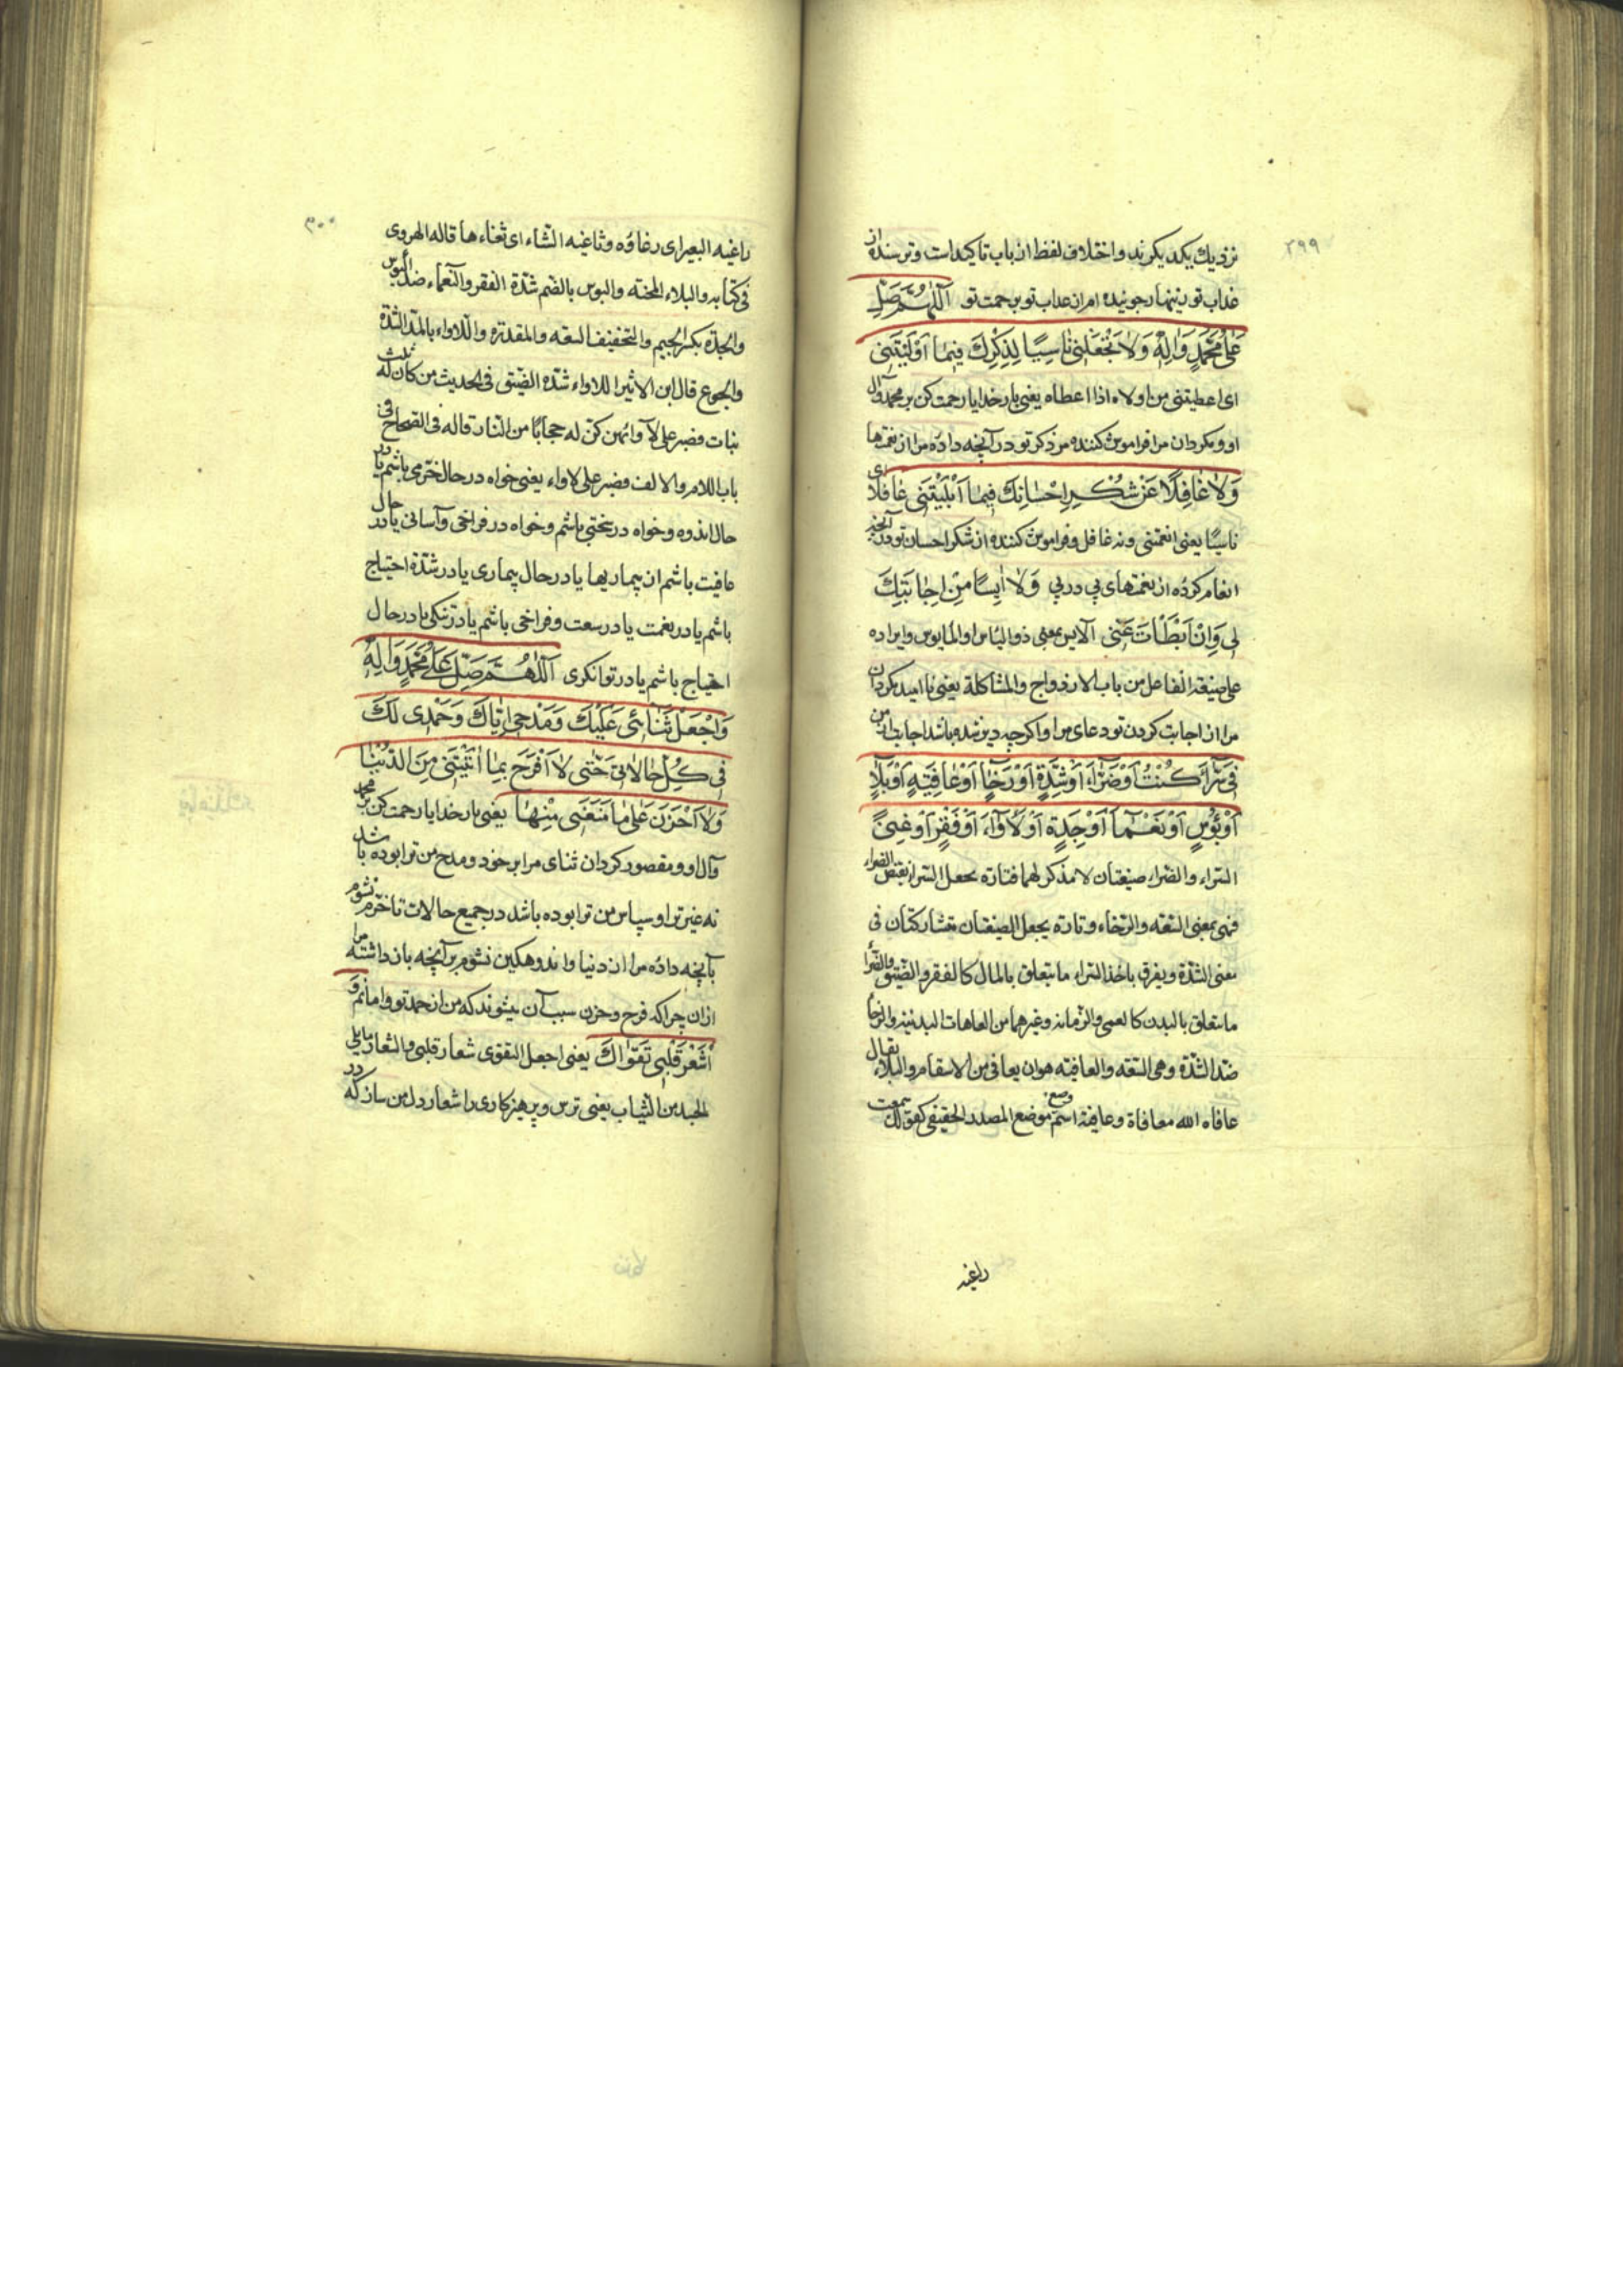 ۲۹۹
نزدیك یکدیکرند واختلاف لفظ از باب تاکیداست وترسنده از
عذاب تو زینهارجوینده ام از عذاب تو برحمت تو اَللّٰهُمَّ صَلِّ
عَلٰی مُحَمَّدٍ وَاٰلِهِ وَلاٰ تَجْعَلْنی نٰاسِیًا لِذِکْرِكَ فیمٰا اَوْلَیْتَنی
ای اعطیتنی من اولاه اذا اعطاه یعنی بارخدایا رحمت کن بر محمد وآل
او ومکردان مرا فراموش کننده مر ذکر تو در آنچه داده مرا از نعمتها
وَلاٰ غٰافِلًا عَنْ شُکْرِ اِحْسٰانِكَ فیمٰا اَبْلَیْتَنی غافلا ای
ناسیًا یعنی انعمتنی ونه غافل وفراموش کننده از شکر احسان تو در آنچه
انعام کرده از نعمتهای پی در پی وَلاٰ اٰیِسًا مِنْ اِجٰابَتِكَ
لی وَاِنْ اَبْطَأَتْ عَنّی الآیس بمعنی ذو الیاس او المایوس وایراده
علی صیغة الفاعل من باب الازدواج والمشاکلة یعنی نا امید مکردان
مرا از اجابت کردن تو دعای مرا واکرچه دیر شده باشد اجابت از من
فی سَرّٰاءَ کُنْتُ اَوْ ضَرّٰاءَ اَوْ شِدَّةٍ اَوْ رَخٰاءٍ اَوْ عٰافِیَةٍ اَوْ بَلاٰءٍ
اَوْ بُؤْسٍ اَوْ نَعْمٰاءَ اَوْ جِدَةٍ اَوْ لَأْوٰاءَ اَوْ فَقْرٍ اَوْ غِنیً
السراء والضراء صیغتان لا مذکر لهما فتارة یجعل السراء نقیض الضراء
فهی بمعنی السعه والرخاء وتارة یجعل الصیغتان متشارکتان فی
معنی الشدّة ویفرق باخذ السراء ما یتعلق بالمال کالفقر والضیق والضراء
ما یتعلق بالبدن کالعمی والزمانه وغیرهما من العاهات البدنیه والرخاء
ضد الشدّة وهی السعه والعافیه هو ان یعافی من الاسقام والبلاء یقال
عافاه الله معافاة وعافیة اسم وضع موضع المصدر الحقیقی کقولك سمعت
راغیه
۳۰۰
راغیه البعیر ای رغاؤه وثاغیه الشاء ای ثغاءها قاله الهروی
فی کتابه والبلاء المحنته والبوس بالضم شدّة الفقر والنعماء ضد البوس
والجدة بکسر الجیم والتخفیف السعه والمقدرة واللاواء بالمد الشدّة
والجوع قال ابن الاثیر اللاواء شدّه الضیق فی الحدیث من کان له ثلث
بنات فصبر علی لأوائهن کن له حجابًا من النار قاله فی الصحاح فی
باب اللام والالف فصبر علی لاواء یعنی خواه در حال خرمی باشم یا در
حال اندوه وخواه در سختی باشم وخواه در فراخی وآسانی یا در حال
عافیت باشم از بیماریها یا در حال بیماری یا در شدّة احتیاج
باشم یا در نعمت یا در سعت وفراخی باشم یا در تنکی یا در حال
احتیاج باشم یا در توانکری اَللّٰهُمَّ صَلِّ عَلٰی مُحَمَّدٍ وَاٰلِهِ
وَاجْعَلْ ثَنٰائی عَلَیْكَ وَمَدْحی اِیّٰاكَ وَحَمْدی لَكَ
فی کُلِّ حٰالاٰتی حَتّٰی لاٰ اَفْرَحَ بِمٰا اٰتَیْتَنی مِنَ الدُّنْیٰا
وَلاٰ اَحْزَنَ عَلٰی مٰا مَنَعْتَنی مِنْهٰا یعنی بارخدایا رحمت کن بر محمد
وآل او ومقصور کردان ثنای مرا بر خود ومدح من ترا بوده باشد
نه غیر ترا وسپاس من ترا بوده باشد در جمیع حالات تا خرم نشوم
بآنچه داده مرا از دنیا واندوهکین نشوم بر آنچه باز داشته مرا
ازان چرا که فرح وحزن سبب آن میشوند که من از حمد تو وامانم وَ
اَشْعِرْ قَلْبی تَقْوٰاكَ یعنی اجعل التقوی شعار قلبی والشعار ما یلی
الجسد من الثیاب یعنی ترس وپرهیزکاری را شعار دل من ساز که در